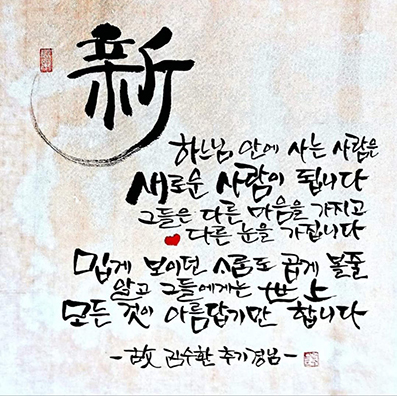 新
하느님, 안에 사는 사람은
새로운 사람이 됩니다
그들은 다른 마음을 가지고
다른 눈을 가집니다
밉게 보이던 스롬도 곱게 볼줄
알고 그들에게는 世上
모든 것이 아름답기만 합니다
-故 김수환 추기경님-